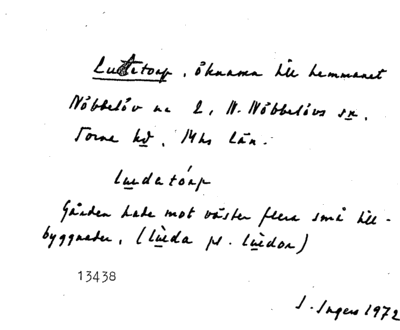 Luttetorp, öknamn till hemmanet
Nöbbelöv nr 2, N. Nöbbelövs sn,
Torna hd, Mhs län.
luedatórp
Gården hade mot väster flera små till-
byggnader, (lüeda pl. lüedor)
13438
I. Ingers 1972